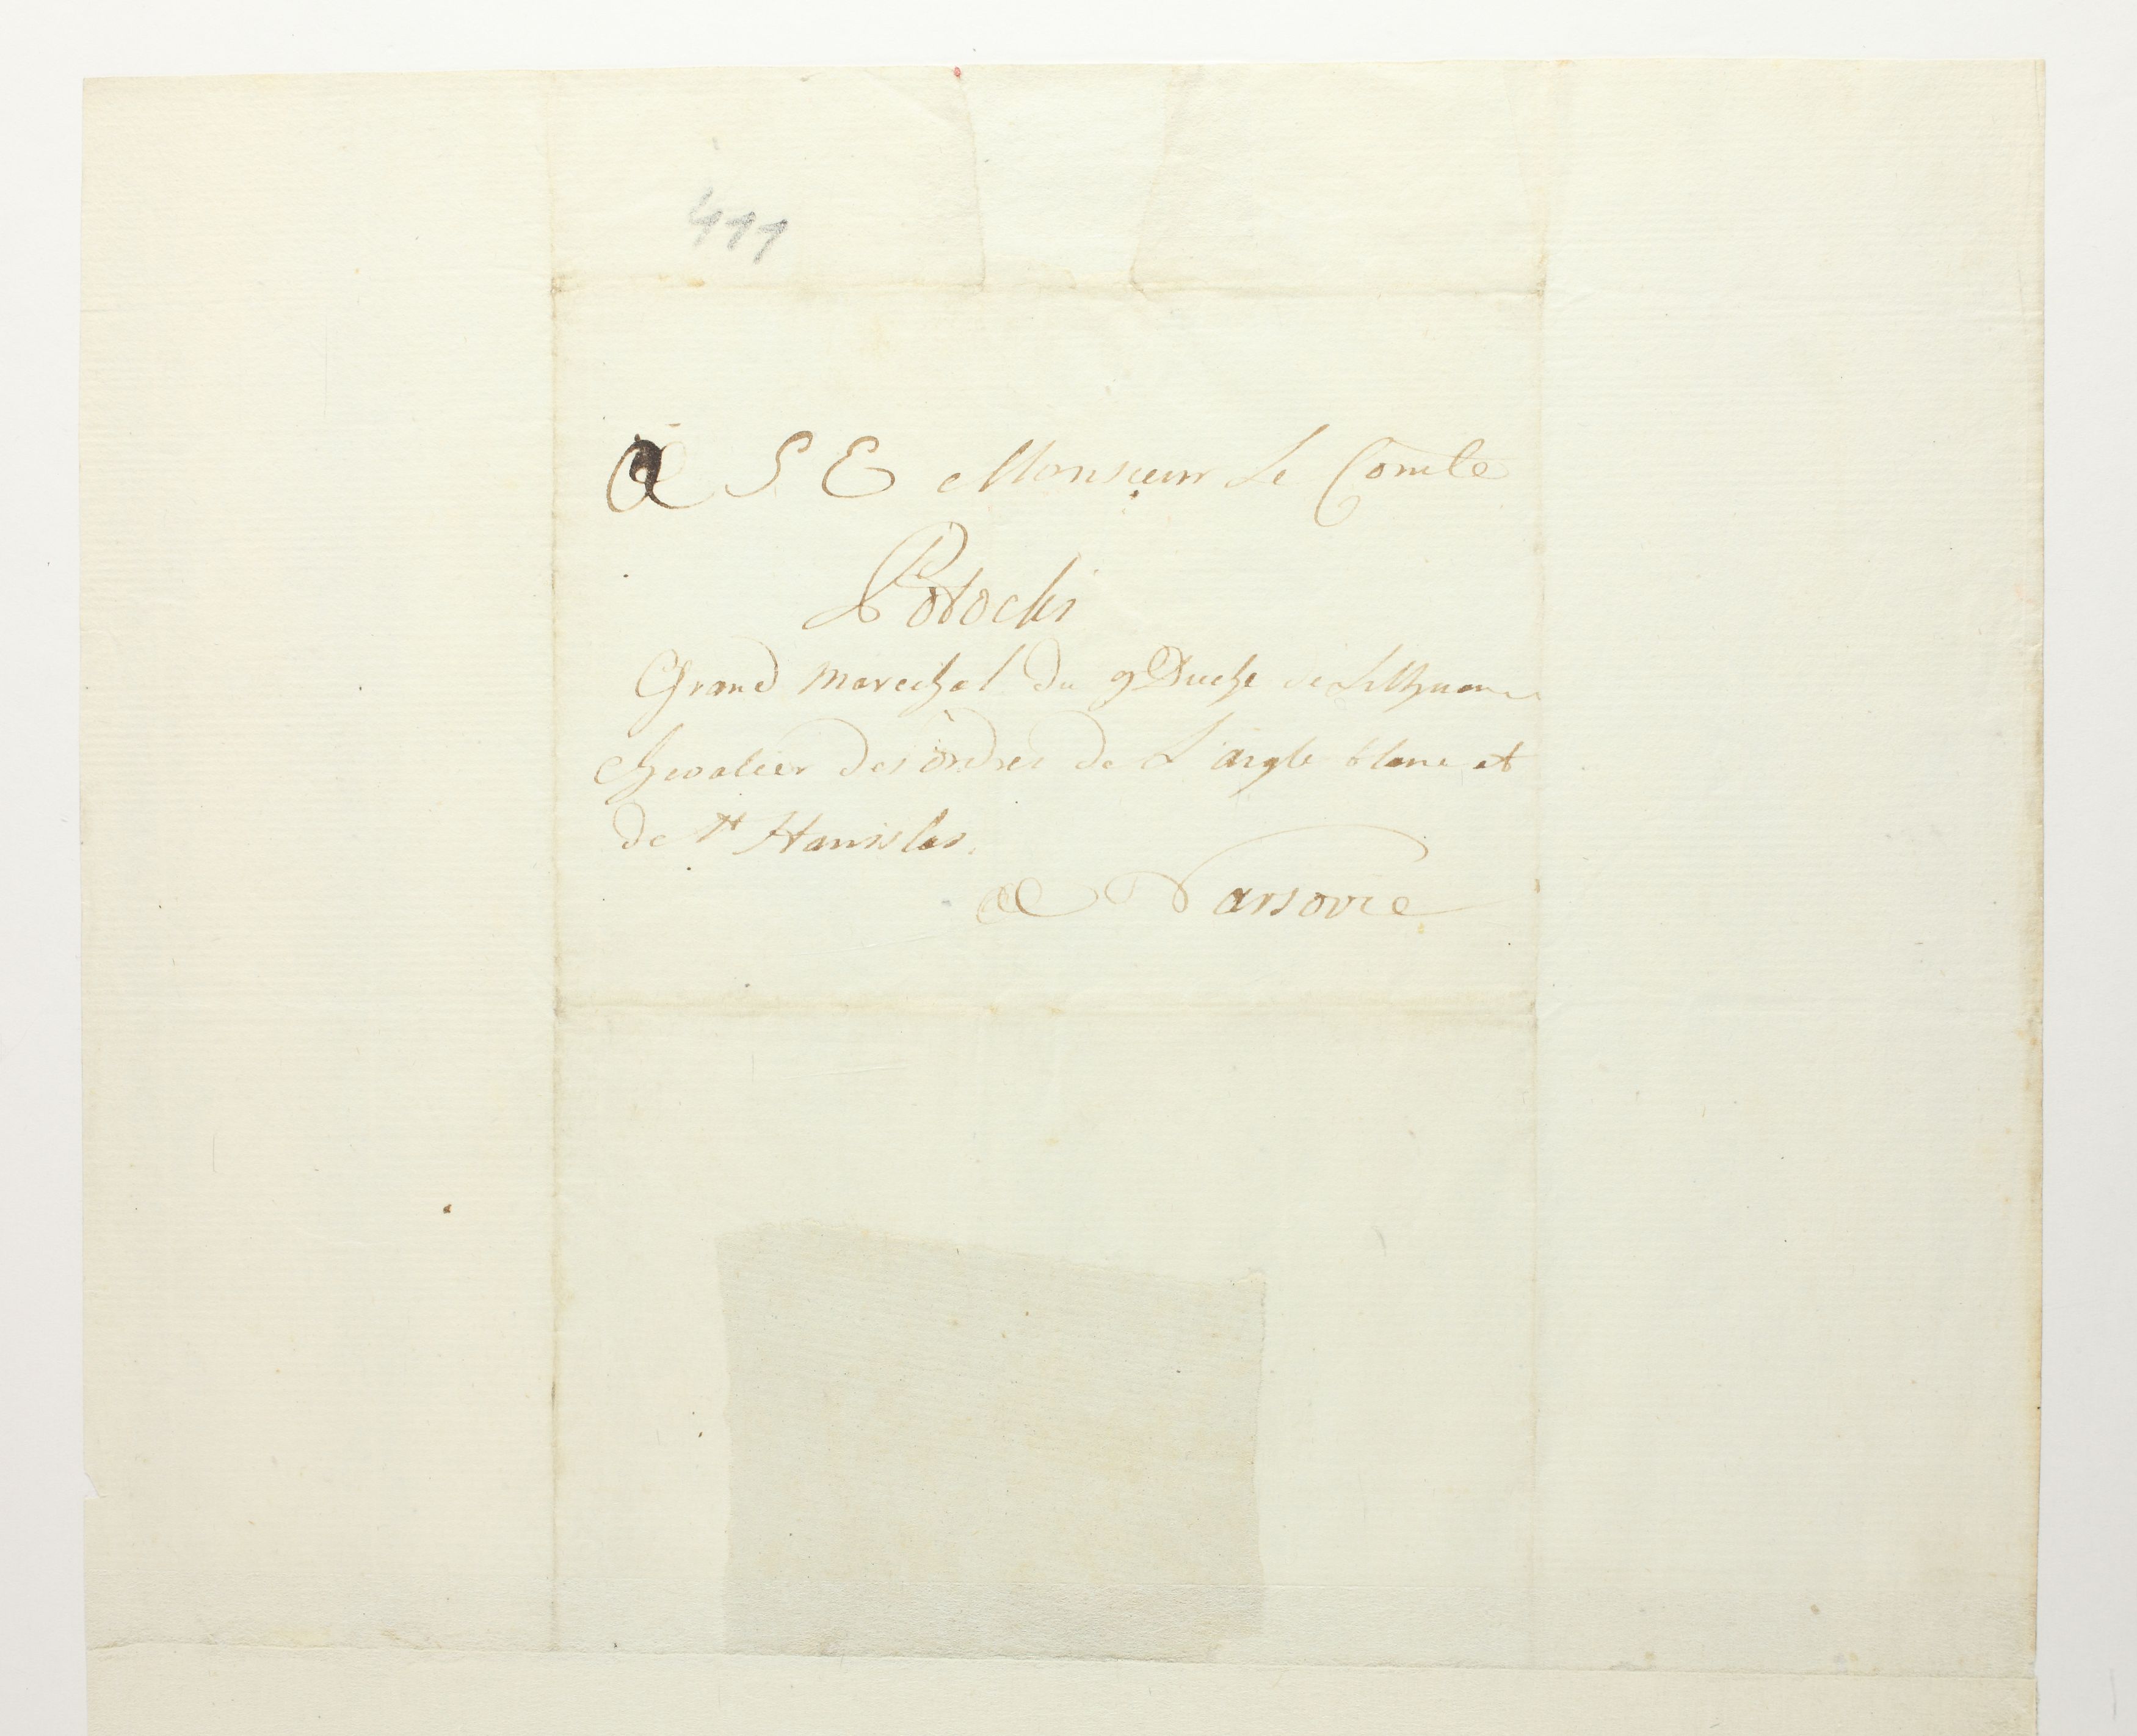 411
A S E Monsieur Le Comte
Potocki
Grand Marechal du g Duché de Lithuanie
Chevalier des ordres de L'aigle blanc et
de St Stanislas.
a Varsovie